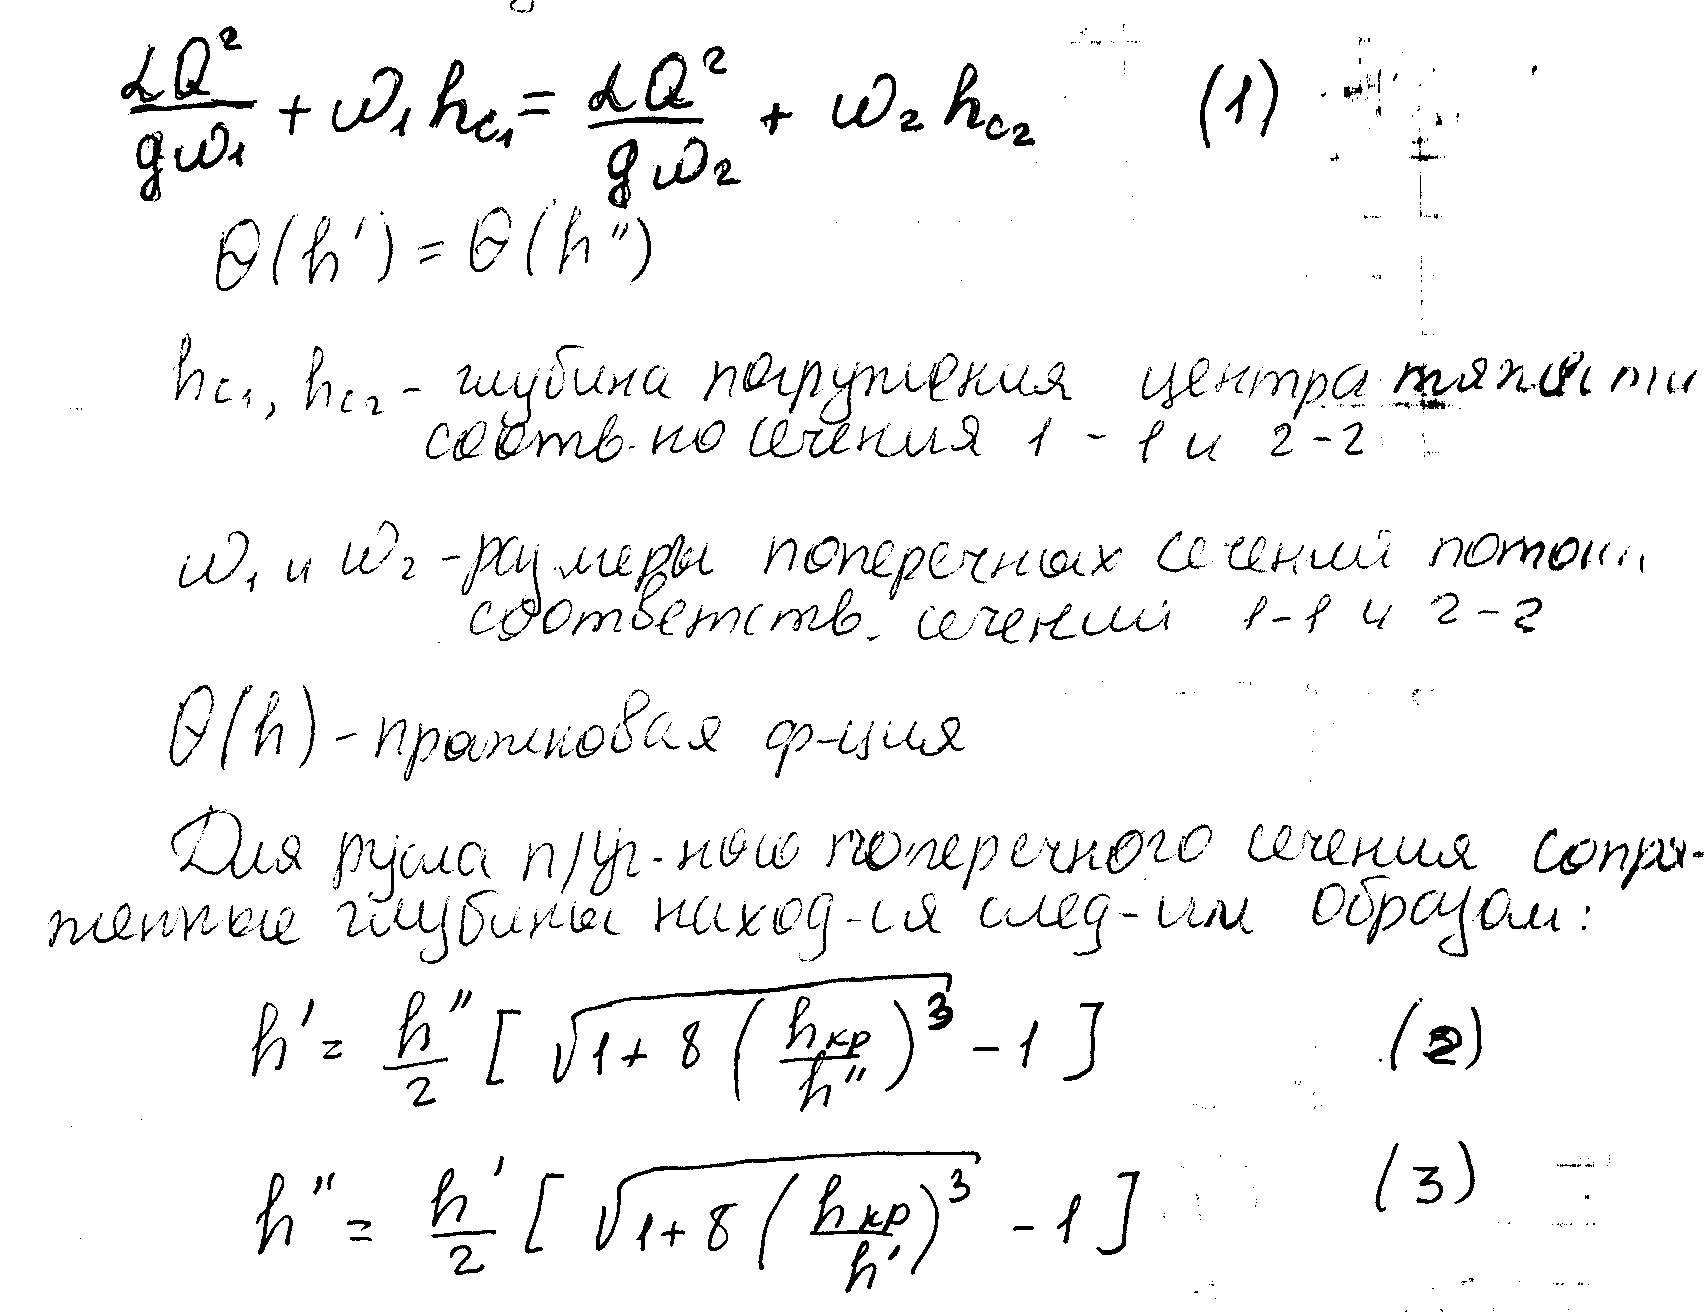 αQ²/gω₁ + ω₁h_c₁ = αQ²/gω₂ + ω₂h_c₂ (1)
θ(h') = θ(h")
h_c₁, h_c₂ - глубина погружения центра тяжести
соотв-но сечения 1-1 и 2-2
ω₁ и ω₂ - размеры поперечных сечений потока
соответств. сечений 1-1 и 2-2
θ(h) - прыжковая ф-ция
Для русла п/уг-ного поперечного сечения сопря-
женные глубины наход-ся след-им образом:
h' = h"/2 [√(1 + 8(h_кр/h")³) - 1] (2)
h" = h'/2 [√(1 + 8(h_кр/h')³) - 1] (3)